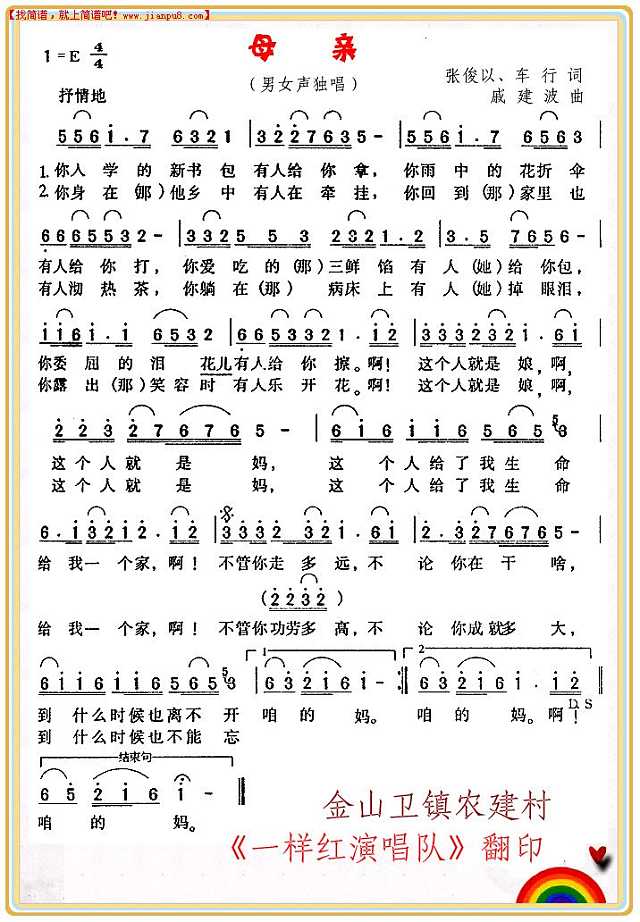 【找简谱，就上简谱吧！www.jianpu8.com】
母 亲
1=E 4/4
（男女声独唱）
张俊以、车 行 词
抒情地
戚 建 波 曲
5 5 6 i . 7 6 3 2 1 | 3 2 2 7 6 3 5 - | 5 5 6 i . 7 6 5 6 3 |
1.你入学的新书包有人给你拿，你雨中的花折伞
2.你身在(那)他乡中有人在牵挂，你回到(那)家里也
6 6 6 5 5 3 2 - | 3 3 2 5 5 3 2 3 2 1 . 2 | 3 . 5 7 6 5 6 - |
有人给你打，你爱吃的(那)三鲜馅有人(她)给你包，
有人沏热茶，你躺在(那)病床上有人(她)掉眼泪，
i i 6 i . 6 5 3 2 | 6 6 5 3 3 2 1 . i 2 | 3 3 3 2 3 2 1 . 6 i |
你委屈的泪花儿有人给你擦。啊！这个人就是娘，啊，
你露出(那)笑容时有人乐开花。啊！这个人就是娘，啊，
2 2 3 2 7 6 7 6 5 - | 6 i 6 i i 6 5 6 5 3 |
这个人就是妈，这个人给了我生命
这个人就是妈，这个人给了我生命
6 . i 3 2 1 2 . | 3 3 3 2 3 2 1 . 6 i | 2 . 3 2 7 6 7 6 5 |
给我一个家，啊！不管你走多远，不论你在干啥，
(2 2 3 2)
给我一个家，啊！不管你功劳多高，不论你成就多大，
6 i i 6 i i 6 5 6 5 3 | 1 6 3 2 i 6 i - :| 2 6 3 2 i 6 i . i 2 |
D S
到什么时候也离不开咱的妈。咱的妈。啊！
到什么时候也不能忘
结束句
6 5 2 i 6 i - - - |
咱的妈。
金山卫镇农建村
《一样红演唱队》翻印